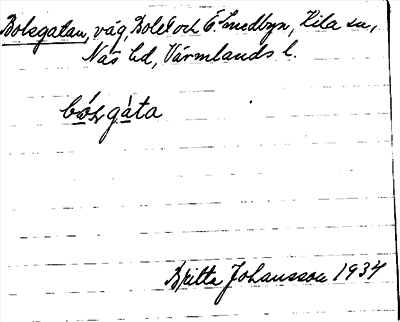 Bolsgatan, väg, Bolet och Ö. Smedbyn, Kila sn,
Näs hd, Värmlands l.
bólsgàta
Britta Johansson 1934